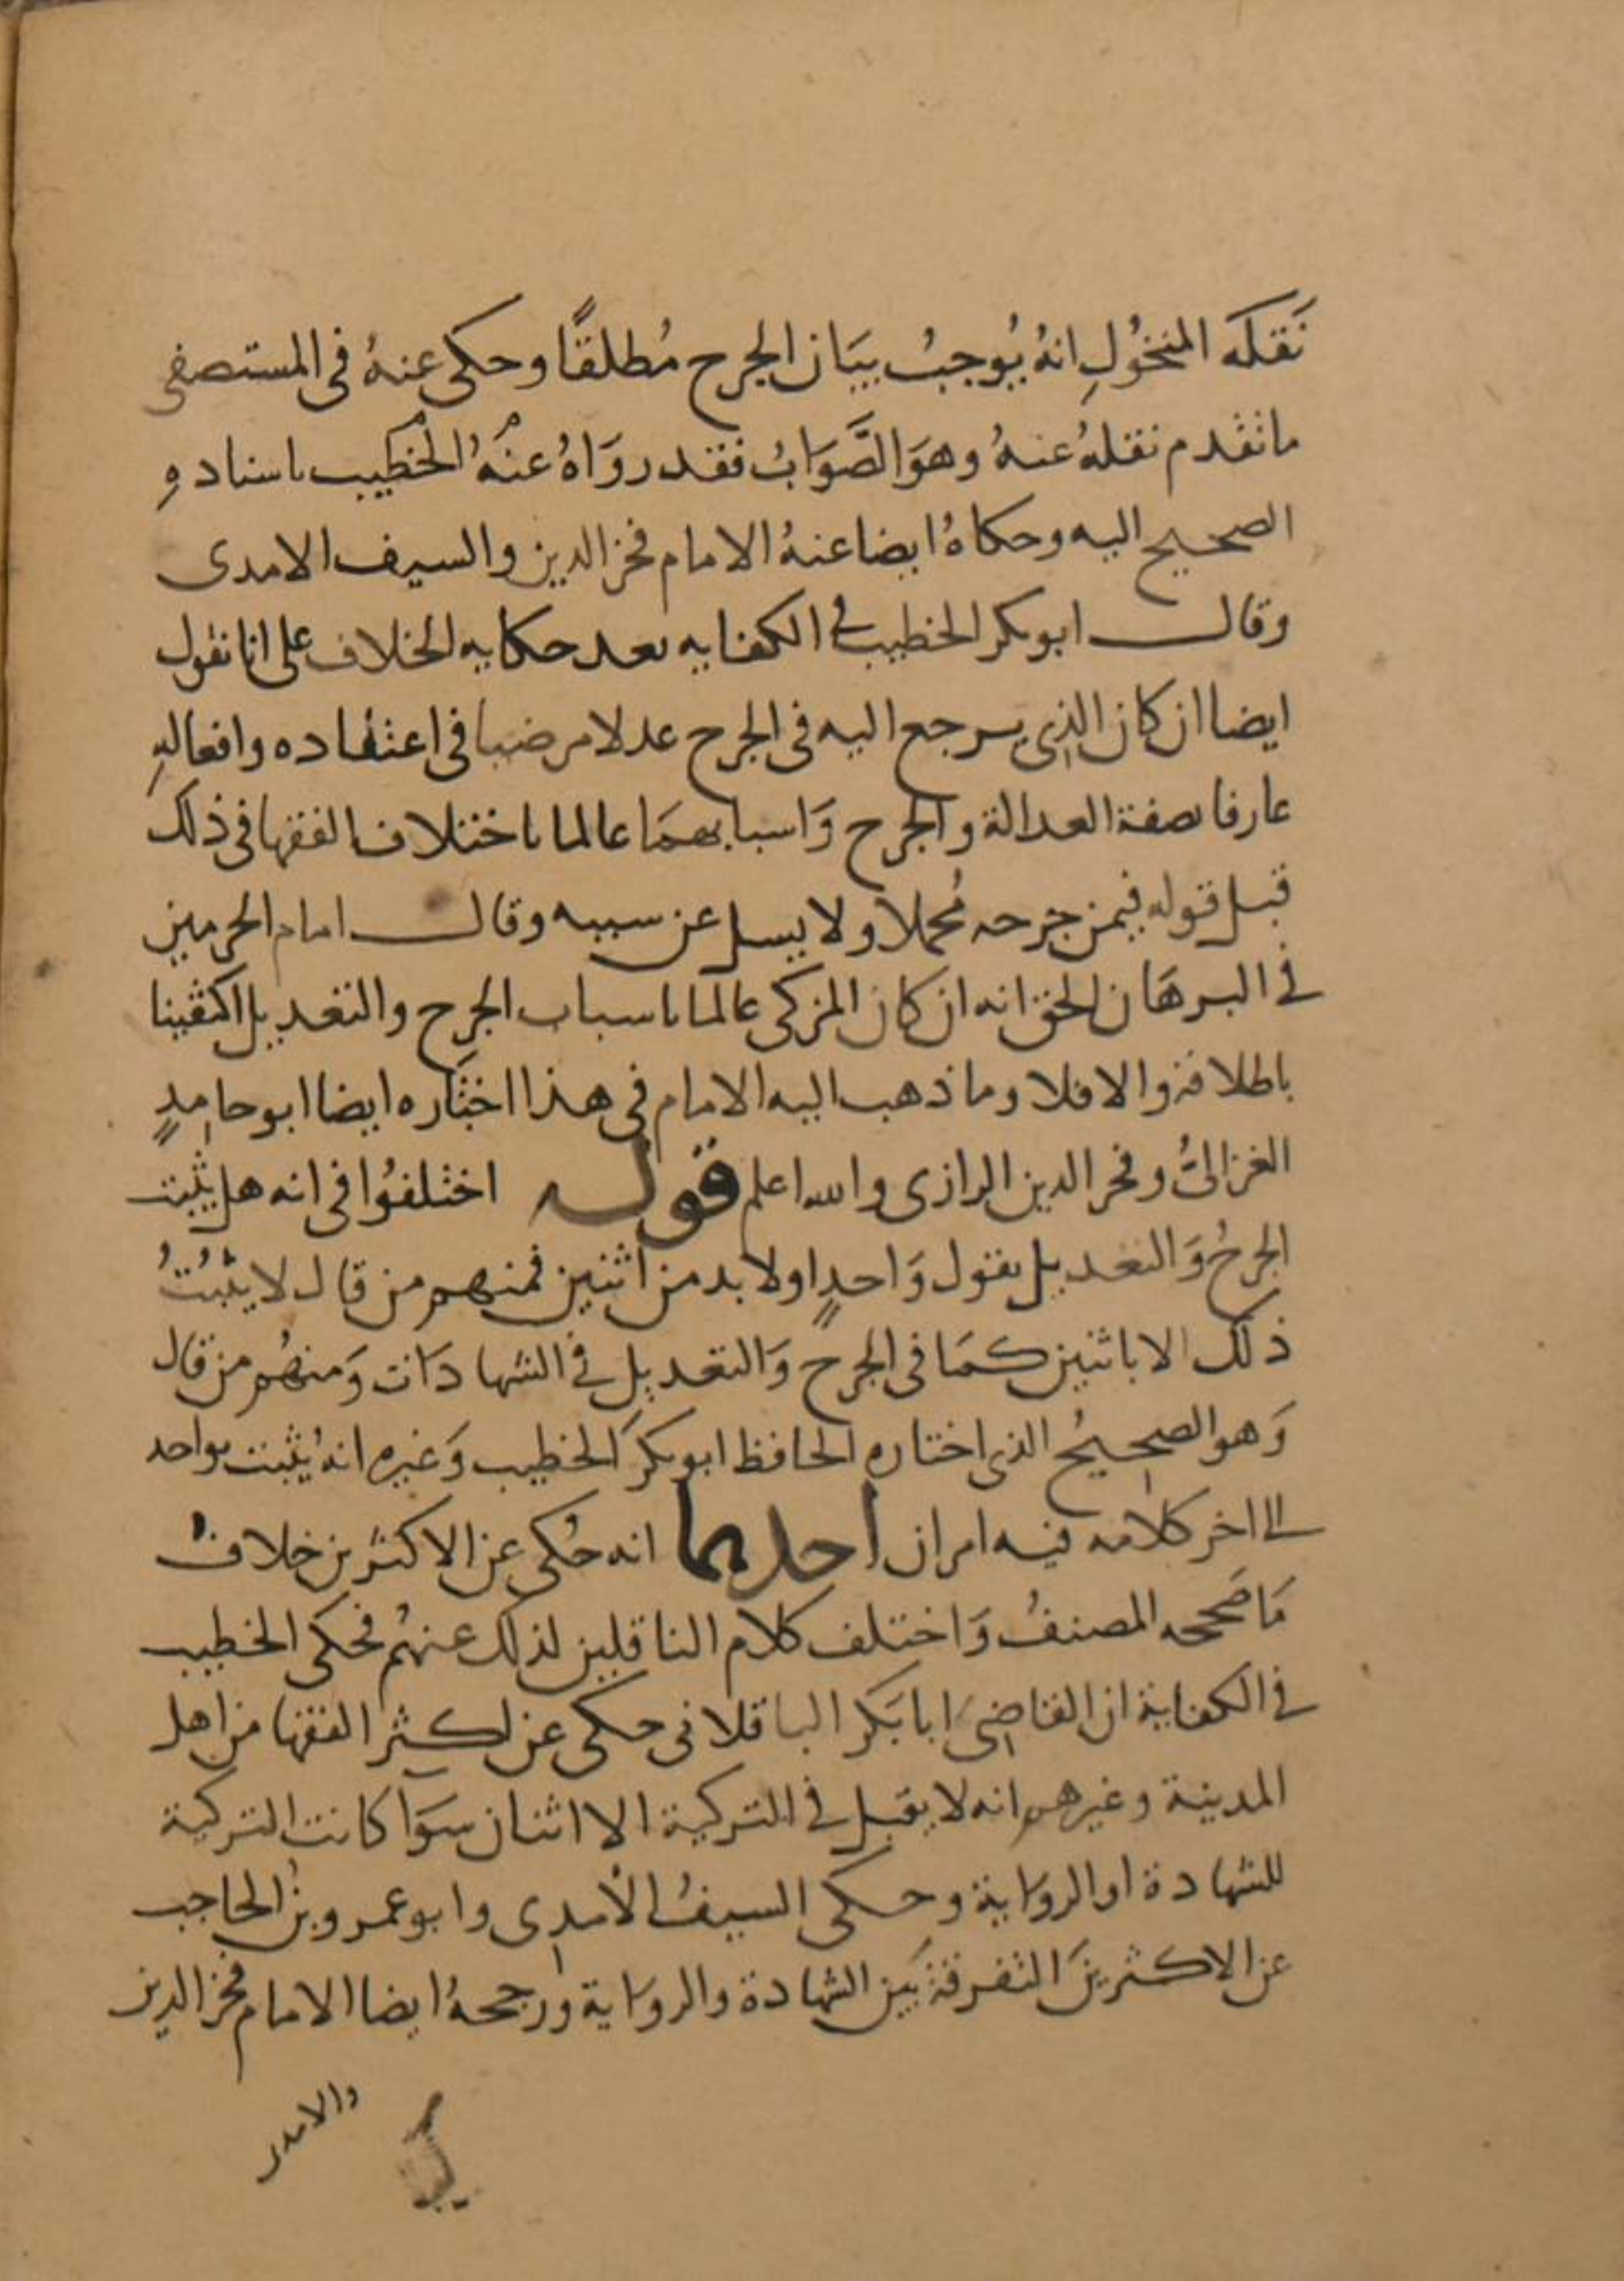 نَقَلَه المنخُولِ انهُ يُوجبُ بيَان الجرح مُطلقًا وحكى عنهُ فى المستصفى
ماتقدم نقلهُ عنهُ وهوَ الصَّوَابُ فقد روَاهُ عنْهُ الخْطيب باسنادهِ
الصحيح اليه وحكاهُ ايضا عنهُ الامام فخر الدين والسيف الامدى
وقال ابوبكر الخطيب فى الكفايه بعد حكايه الخلاف على انا نقول
ايضا ان كان الذى يرجع اليه فى الجرح عدلا مرضيا فى اعتقاده وافعالهِ
عارفا بصفة العدالة والجرح وَاسبابهمَا عالما باختلاف الفقها فى ذلك
قبل قوله فيمن جرحه مُجملا ولا يسل عن سببه وقال امام الحرمين
فى البرهَان الحق انه ان كان المزكى عالما باسباب الجرح والتعديل اكتفينا
باطلاقه والا فلا وما ذهب اليه الامام فى هذا اختَاره ايضا ابوحامدٍ
الغزالىُّ وفخر الدين الرازى والله اعلم قوله اختلفوُا فى انه هل يثبت
الجرحُ وَالتعديل بقول وَاحدٍ اولا بد من اثنين فمنهم من قال لا يثبُتُ
ذلك الا باثنين كمَا فى الجرح وَالتعديل فى الشهادَات وَمنهُم من قال
وَهو الصحيحُ الذى اختاره الحافظ ابوبكرَ الخطيب وَغيره انهُ يثبت بواحد
الى اخر كلامه فيه امران احدهما انه حُكى عن الاكثرين خلاف
مَا صَححه المصنفُ وَاختلف كلام الناقلين لذلك عنهُم فحكى الخطيب
فى الكفاية ان القاضِىَ ابا بَكر الباقلانى حكى عن اكثر الفقها من اهل
المدينة وغيرهم انه لا يقبل فى التزكية الا اثنان سوَا كانت التزكية
للشهادة او الروَاية وحكى السيفُ الأمدِى وابوعمرو بنُ الحاجب
عن الاكثرينَ التفرقة بَين الشهادة والروَاية ورجحهُ ايضا الامام فخر الدين
والامدى